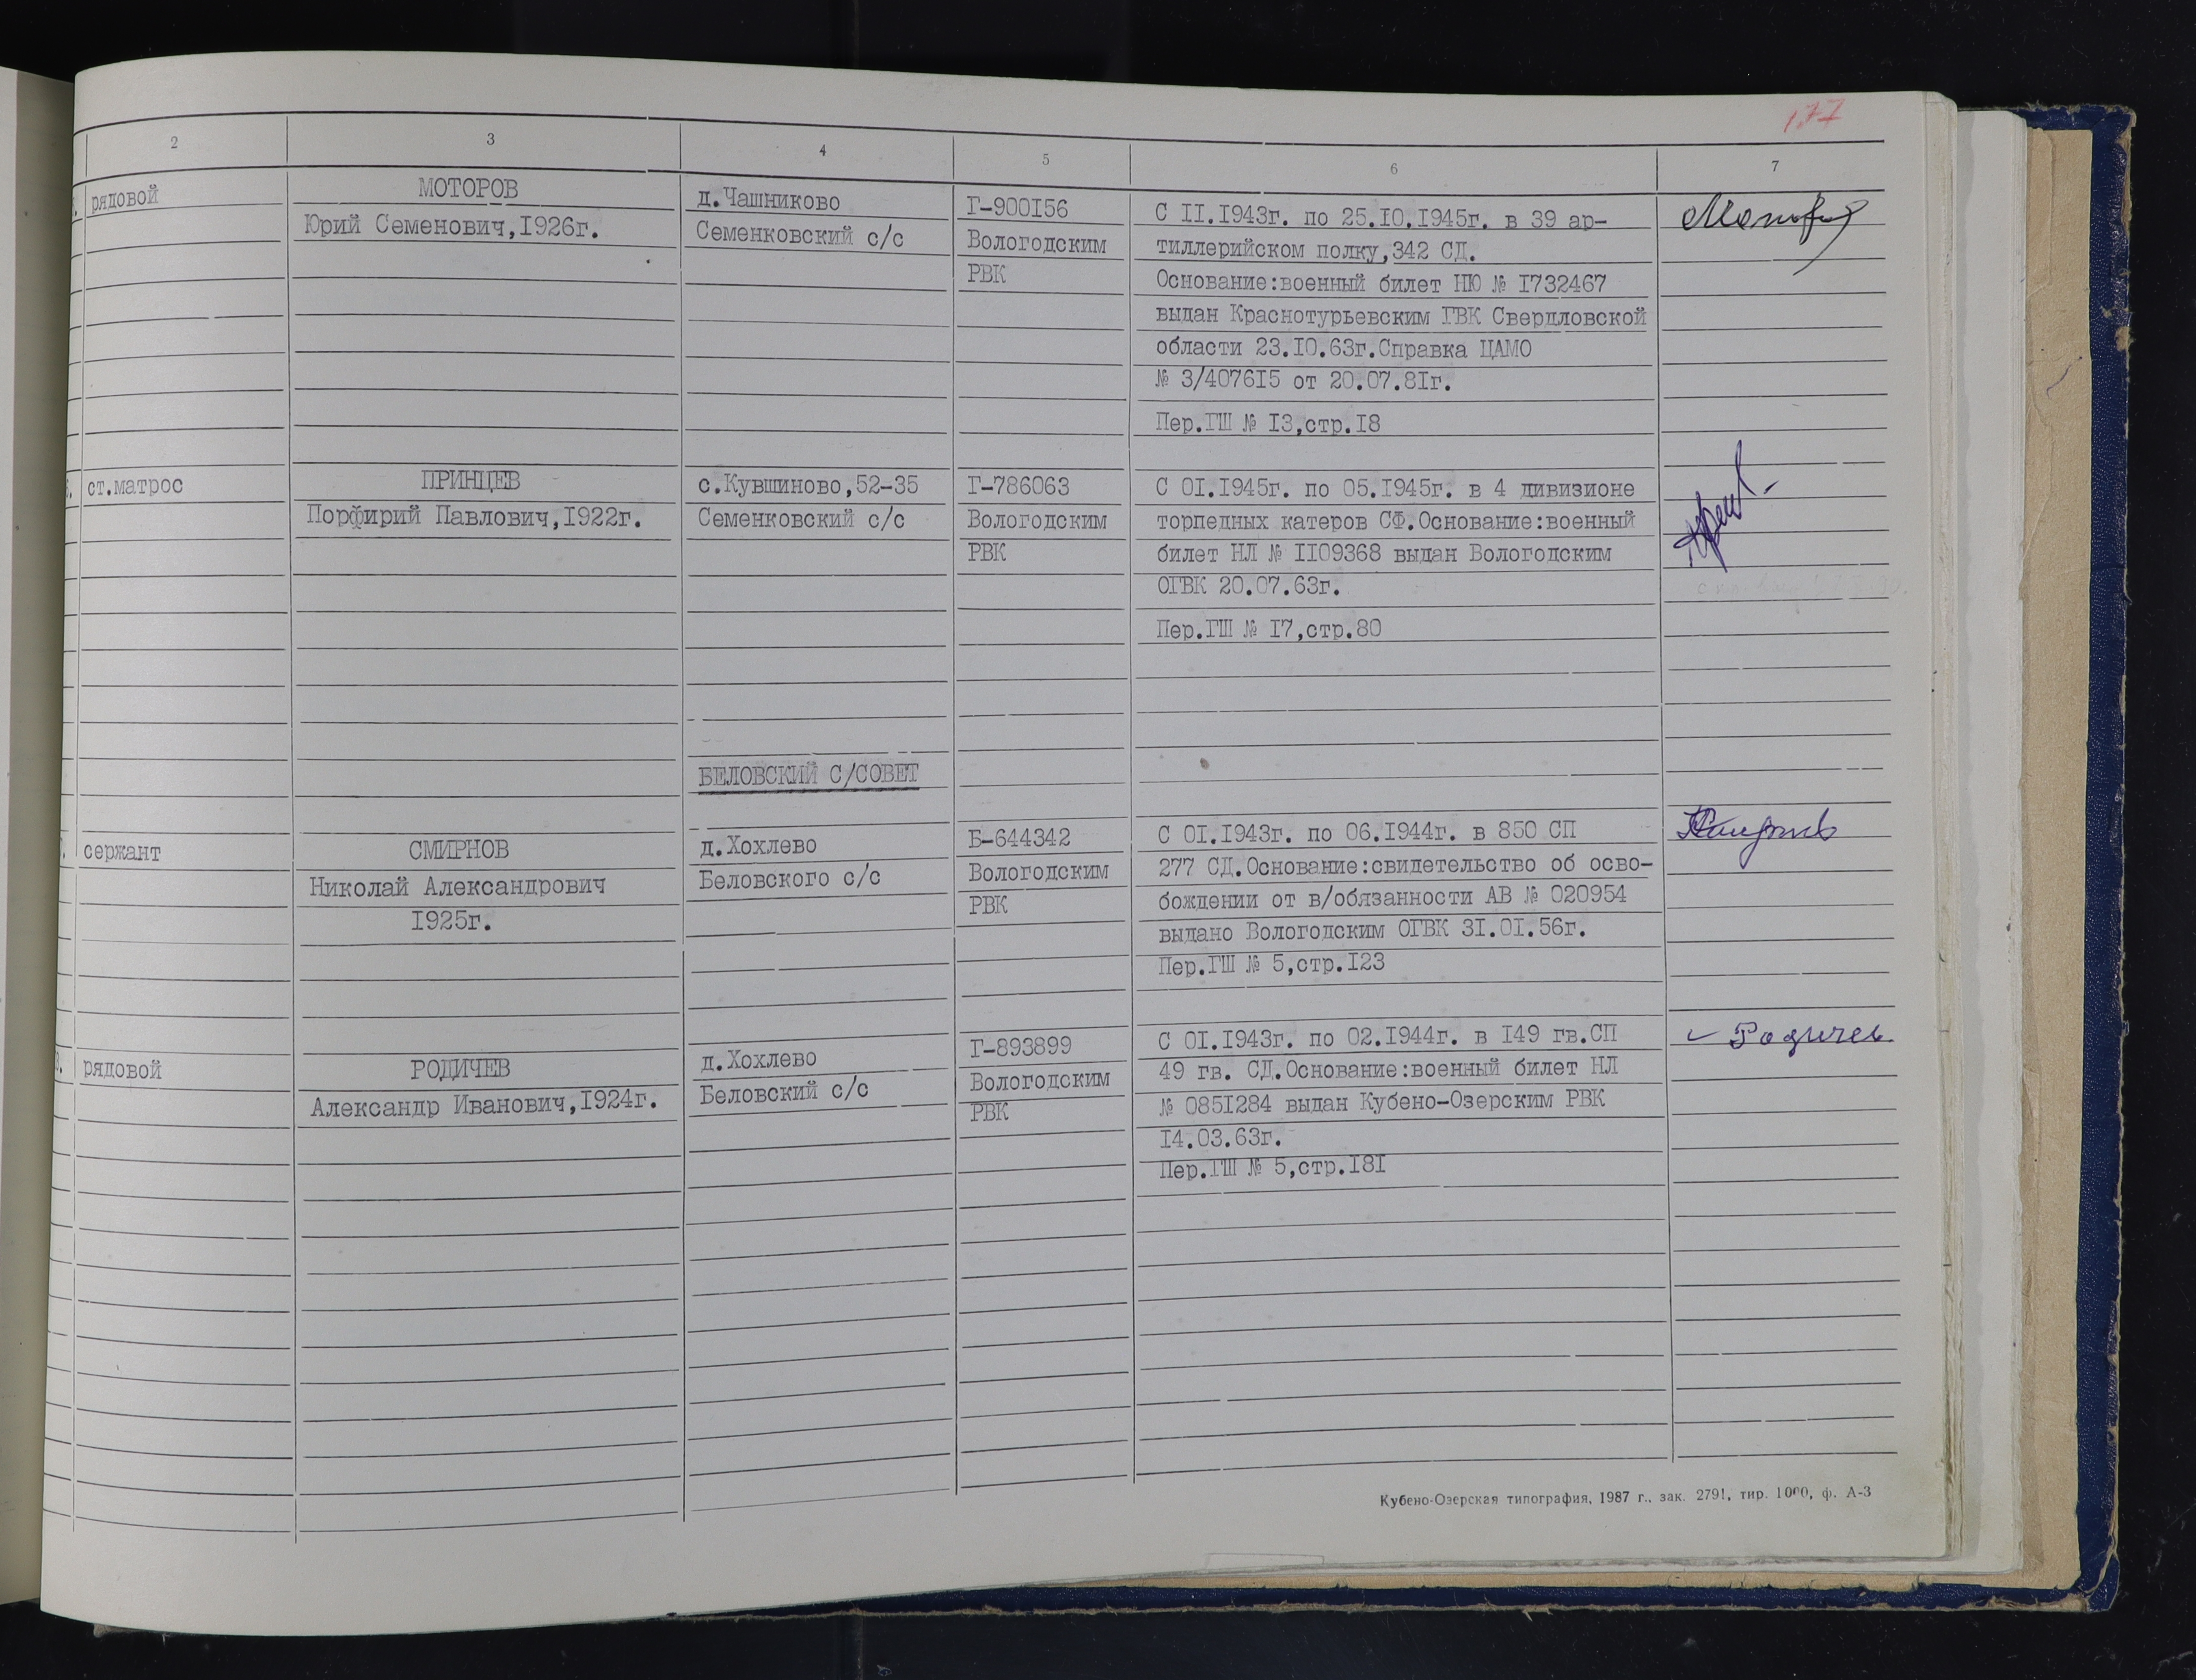 177
2 3 4 5 6 7
рядовой
МОТОРОВ
Юрий Семенович,I926г.
д.Чашниково
Семенковский с/с
Г-900I56
Вологодским
РВК
С II.I943г. по 25.I0.I945г. в 39 ар-
тиллерийском полку,342 СД.
Основание:военный билет НЮ № I732467
выдан Краснотурьевским ГВК Свердловской
области 23.I0.63г.Справка ЦАМО
№ 3/4076I5 от 20.07.8Iг.
Пер.ГШ № I3,стр.I8
ст.матрос
ПРИНЦЕВ
Порфирий Павлович,I922г.
с.Кувшиново,52-35
Семенковский с/с
Г-786063
Вологодским
РВК
С 0I.I945г. по 05.I945г. в 4 дивизионе
торпедных катеров СФ.Основание:военный
билет НЛ № II09368 выдан Вологодским
ОГВК 20.07.63г.
Пер.ГШ № I7,стр.80
БЕЛОВСКИЙ С/СОВЕТ
сержант
СМИРНОВ
Николай Александрович
I925г.
д.Хохлево
Беловского с/с
Б-644342
Вологодским
РВК
С 0I.I943г. по 06.I944г. в 850 СП
277 СД.Основание:свидетельство об осво-
бождении от в/обязанности АВ № 020954
выдано Вологодским ОГВК 3I.0I.56г.
Пер.ГШ № 5,стр.I23
рядовой
РОДИЧЕВ
Александр Иванович,I924г.
д.Хохлево
Беловский с/с
Г-893899
Вологодским
РВК
С 0I.I943г. по 02.I944г. в I49 гв.СП
49 гв. СД.Основание:военный билет НЛ
№ 085I284 выдан Кубено-Озерским РВК
I4.03.63г.
Пер.ГШ № 5,стр.I8I
Родичев
Кубено-Озерская типография, 1987 г., зак. 2791, тир. 1000, ф. А-3